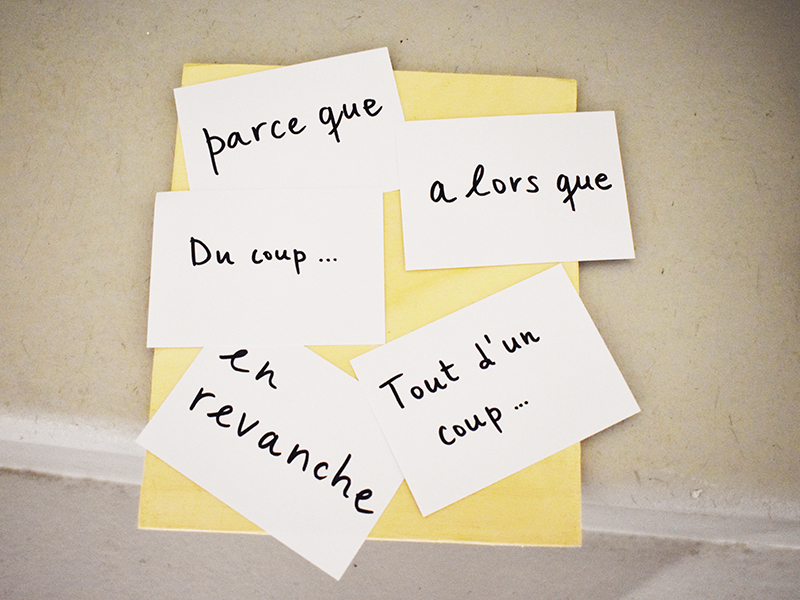 parce que
alors que
Du coup ...
en
revanche
Tout d'un
coup ...